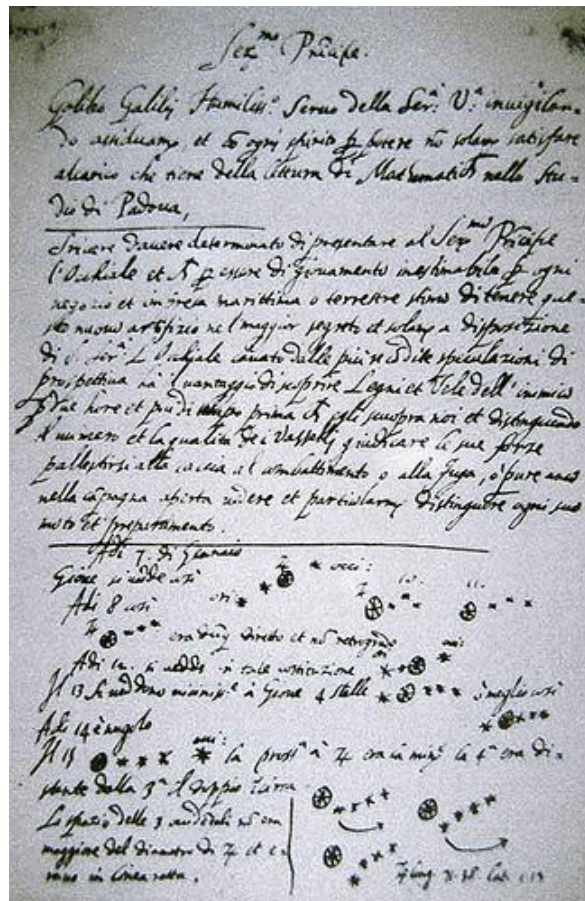 Ser.mo Principe.
Galileo Galilei Humiliss.o Servo della Ser.a V.a invigilan-
do assiduam.te et cō ogni spirito p̱ potere nō solam.te satisfare
alcarico che tiene della lettura di Mathematica nello Stu-
dio di Padova,
Scrivere d'avere determinato di presentare al Ser.mo Principe
l'Occhiale et p̱ essere di giovamento inestimabile p̱ ogni
negozio et impresa marittima o terrestre stimo di tenere que
sto nuovo artifizio nel maggior segreto et solam.te a disposizione
di S. Ser.a L'Occhiale cavato dalle più recōdite speculazioni di
prospettiva hà il vantaggio di scoprire Legni et Vele dell'inimico
p̱ due hore et più di tempo prima ch egli scuopra noi et distinguendo
il numero et la qualità de i Vasselli giudicare le sue forze
pallestirsi alla caccia al combattimento o alla fuga, ò pure anco
nella cāpagna aperta vedere et particolarm.te distinguere ogni suo
moto et preparamento.
Adi 7. di Gennaio
Gione si vedde così
ori: occi:
Adi 8 così
10. 11.
era dūq̃ diretto et nō retrogrado
Adi 12. si vedde in tale costituzione
Il 13 si veddono vicinis.e à Giove 4 stelle ò meglio così
Adi 14 è nugolo
Il 15 la pross.a à ♃ era la min.e la 4.a era di-
stante dalla 3.a il doppio circa
Lo spazio delle 3 occidētali nō era
maggiore del diametro di ♃ et e-
rano in linea retta.
♃ long. 71. 38. Lat. 1. 13